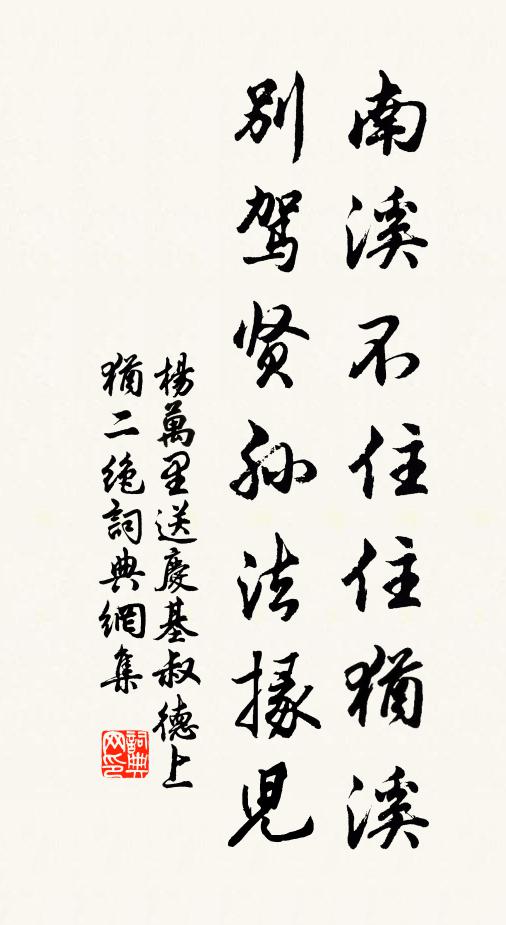 南溪不住住猶溪
別駕贤孙法掾児
楊萬里送慶基叔德上
猶二绝詞典網集
詞典
网印